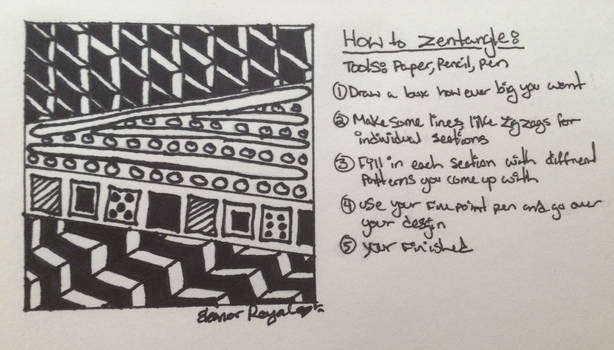 How to Zentangle:
Tools: Paper, Pencil, Pen
① Draw a box how ever big you want
② Make some lines like zigzags for
individual sections
③ Fill in each section with diffrent
Patterns you come up with
④ use your Fine point pen and go over
your design
⑤ your Finished
Eleanor